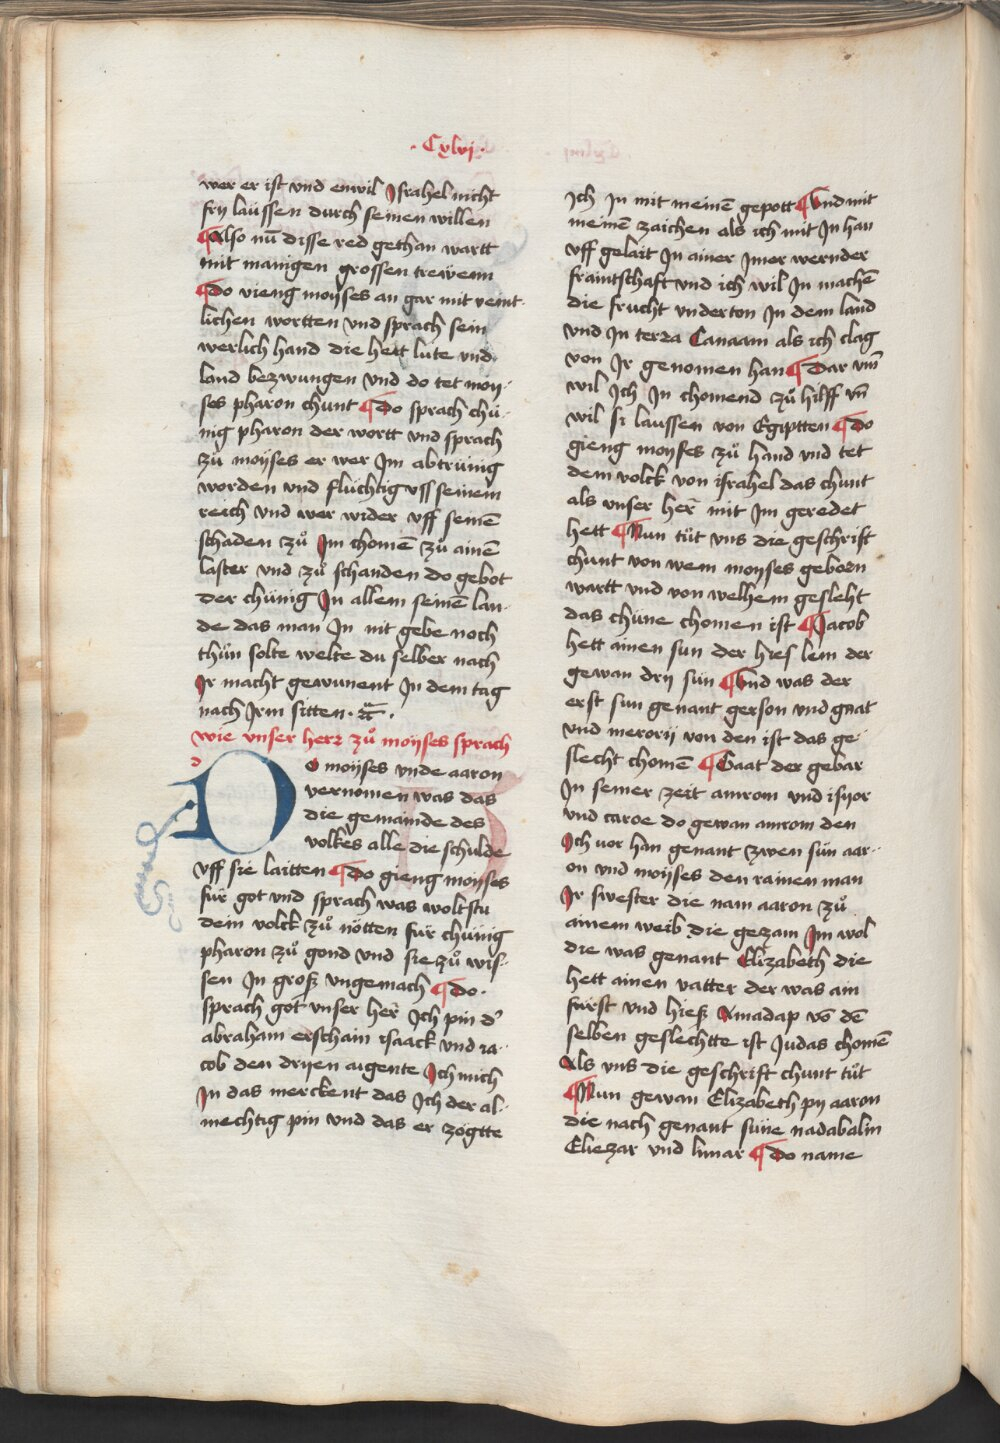 · Cxlvj ·
wer er ist vnd enwil Israhel nicht
fry laüssen durch seinen willen
¶ Also nū disse red gethan wartt
mit manigen grossen trewenn
¶ Do vieng moÿses an gar mit veint-
lichen wortten vnd sprach sein
werlich hand die hett lute vnd
land bezwungen vnd do tet moÿ-
ses pharon chunt ¶ Do sprach chü-
nig pharon der wortt vnd sprach
zů moÿses er wer Im abtrünig
worden vnd flüchtig vss seinem
reich vnd wer wider vff semē
schaden zů Im chomē zů ainē
laster vnd zů schanden do gebot
der chünig In allem seinē lan-
de das man In nit gebe noch
thůn solte welte du selber nach
Ir macht gewunent In dem tag
nach Irm sitten ·
wie vnser herr zů moÿses sprach
DO moÿses vnde aaron
vernomen was das
die gemainde des
volkes alle die schulde
vff sie laitten ¶ Do gieng moÿses
für got vnd sprach was woltstu
dein volck zů nötten für chünig
pharon zů gond vnd sie zů wis-
sen In groß vngemach ¶ Do
sprach got vnser her̄ Ich pin d'
abraham erschain isaack vnd ia-
cob den drÿen augente Ich mich
In das merckent das Ich der al-
mechtig pin vnd das er zögtte
Ich In mit meinē gepott ¶ Vnd mit
meinē zaichen als ich mit In han
vff gelait In ainer Imer wernder
fraintschaft vnd ich wil In machē
die frucht vnderton In dem land
vnd In terra Canaam als ich clag
von Ir genomen han ¶ Dar vm̄
wil Ich In chomend zů hilff vn̄
wil si laussen von Egiptten ¶ Do
gieng moÿses zů hand vnd tet
dem volck von israhel das chunt
als vnser her̄ mit Im geredet
hett ¶ Nun tůt vns die geschrift
chunt von wem moÿses geborn
wartt vnd von welhem gesleht
das chüne chomen ist ¶ Jacob
hett ainen sun der hies leui der
gewan drÿ sün ¶ Vnd was der
erst sun genant gerson vnd gaat
vnd merorÿ von den ist das ge-
slecht chomē ¶ Gaat der gebar
In seiner zeit amrom vnd isÿor
vnd caroe do gewan amrom den
Ich vor han genant zwen sün aar-
on vnd moÿses den rainen man
Ir swester die nam aaron zů
ainem weib die gezam Im wol
die was genant Elizabeth die
hett ainen vatter der was ain
fürst vnd hieß Amadap vō dē
selben geslechtte ist Judas chomē
Als vns die geschrift chunt tůt
¶ Nun gewan Elizabeth pÿ aaron
die nach genant süne nadabalm
Eliezar vnd ¶ Do name